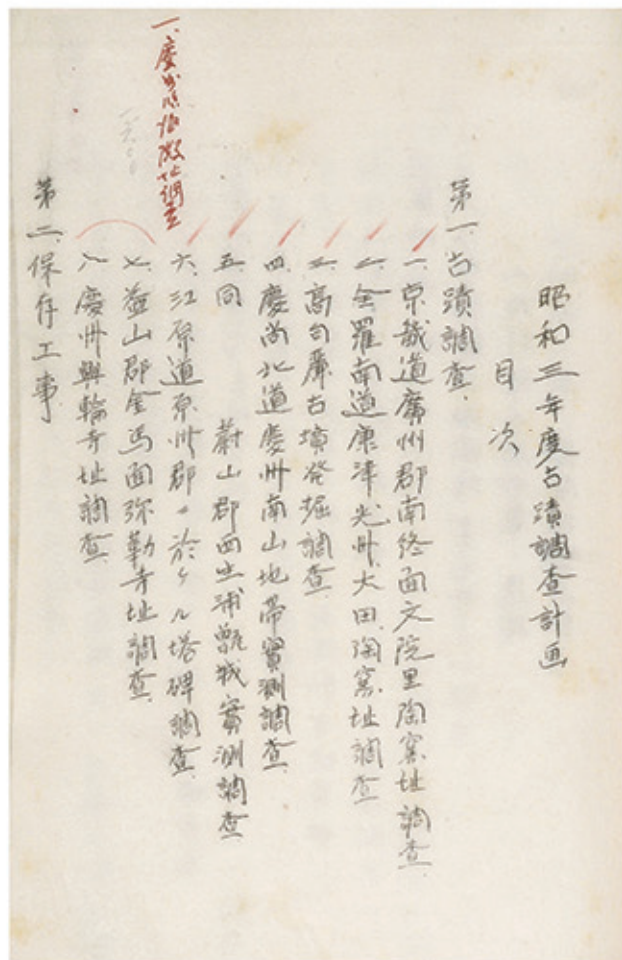 昭和三年度古蹟調査計画
目次
第一、古蹟調査、
一、京畿道廣州郡南終面文院里陶窯址調査、
二、全羅南道康津光州大田陶窯址調査
三、高句麗古墳発掘調査、
四、慶尚北道慶州南山地帯實測調査、
五、同 蔚山郡西生浦甑城實測調査、
六、江原道原州郡ニ於ケル塔碑調査、
七、益山郡金馬面弥勒寺址調査、
八、慶州興輪寺址調査、
一、慶州 址調査
第二、保存工事、